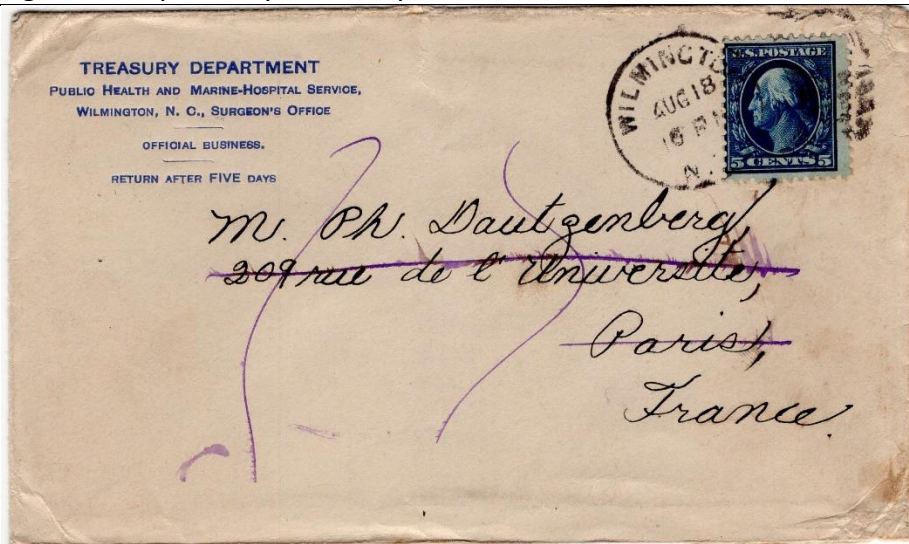 TREASURY DEPARTMENT
PUBLIC HEALTH AND MARINE-HOSPITAL SERVICE,
WILMINGTON, N. C., SURGEON'S OFFICE
OFFICIAL BUSINESS.
RETURN AFTER FIVE DAYS
WILMINGTO
AUG 18
N.
U.S. POSTAGE
5 CENTS 5
M. Ph. Dautzenberg,
209 rue de l'Universite,
Paris,
France.